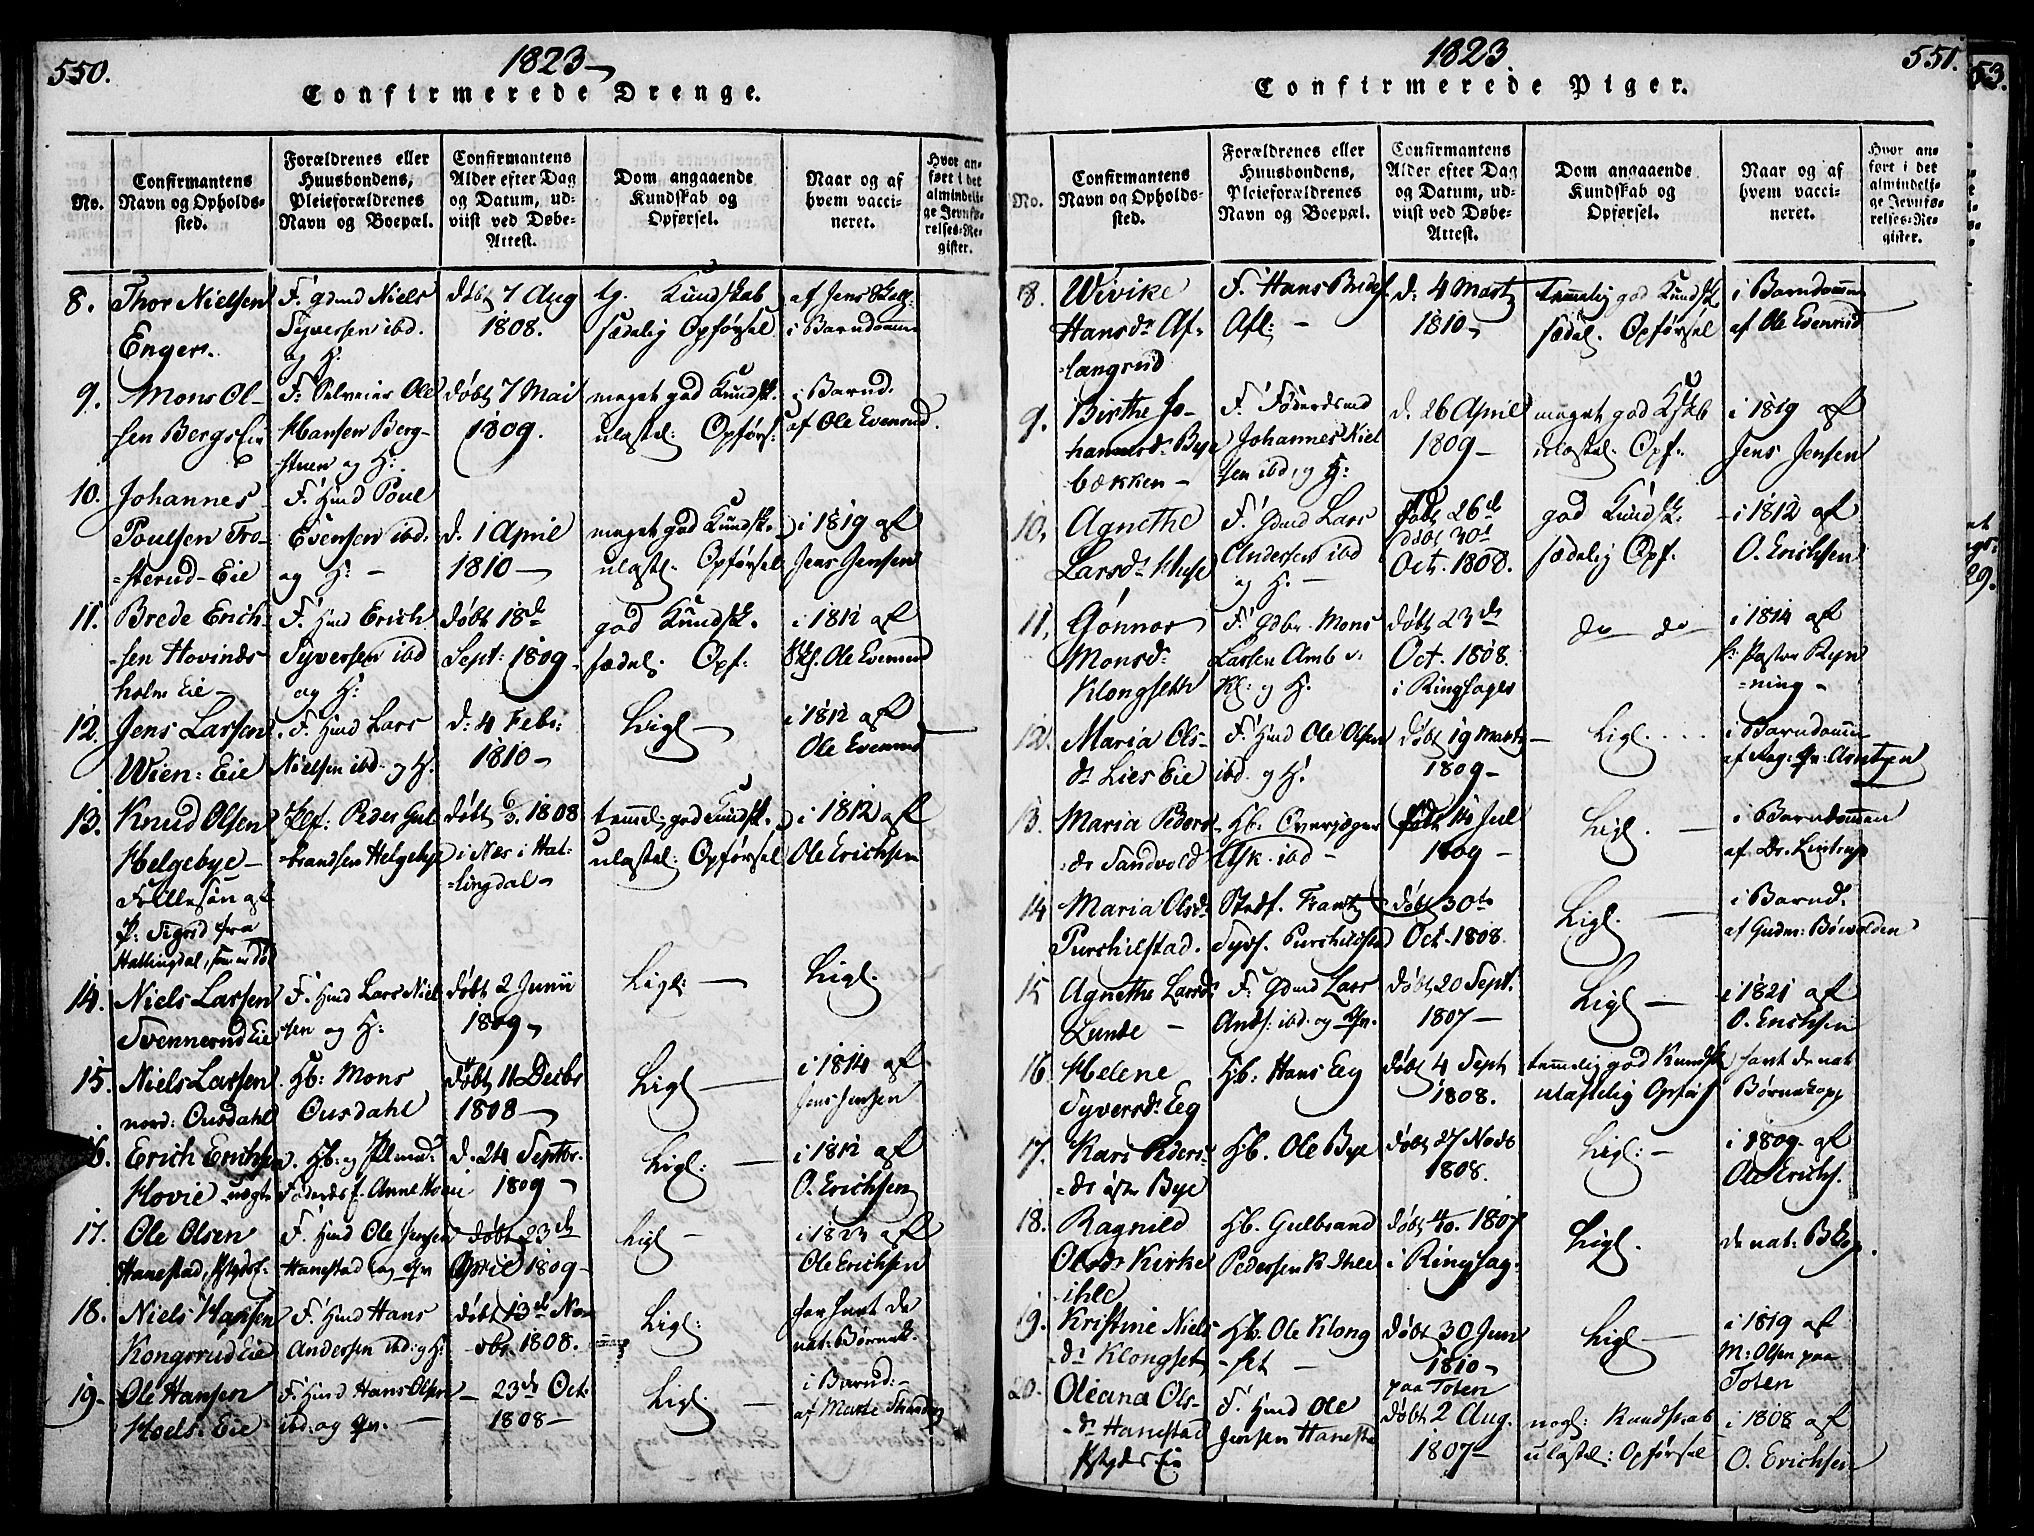 550.
1823
Confirmerede Drenge.
No.
Confirmantens
Navn og Opholds-
sted.
Forældrenes eller
Huusbondens,
Pleieforældrenes
Navn og Boepæl.
Confirmantens
Alder efter Dag
og Datum, ud-
viist ved Døbe-
Attest.
Dom angaaende
Kundskab og
Opførsel.
Naar og af
hvem vacci-
neret.
Hvor an-
ført i det
almindeli-
ge Jevnfø-
relses-Re-
gister.
8. Thor Nielsen
Enger.
F. Gmd Niels
Syversen ibd.
og H.
døbt 7 Aug
1808.
tg. Kundskab
sædelig Opførsel
af Jens
i Barndomm
9. Mons Ol-
sen Bergs
F: Selveier Ole
Hansen Berg-
stuen og H:
døbt 7 Mai
1809.
meget god Kundsk.
ulastel: Opførs:
i Barnd.
af Ole Evenrud
10. Johannes
Poulsen Fro-
=sterud-Eie
F. Hmd Poul
Evensen ibd.
og H: -
d. 1 April
1810 -
meget god Kundsk.
ulastl. Opførsel
i 1819 af
Jens Jensen
11. Brede Erich-
sen Hovinds-
holm Eie -
F. Hmd Erich
Syversen ibd
og H:
døbt 18de
Sept: 1809
god Kundsk.
sædel. Opf:
i 1812 af
Ole Evenrud
12. Jens Larsen
Wien: Eie
F. Hmd Lars
Nielsen ibd. og H.
d: 4 Febr:
1810 -
Ligl -
i 1812 af
Ole Evenrud
13. Knud Olsen
Helgebye -
af
P: Sigrid fra
Hallingdal, som er død
Peder Gul
brandsen Helgebye
døbt 1808
i Næs i Hal-
=lingdal -
temmel: god Kundsk.
ulastel: Opførsel
i 1812 af
Ole Erichsen
14. Niels Larsen
Svennerud Eie
F. Hmd Lars Niel
sen og H:
døbt 2 Junii
1809 -
Ligl: -
Ligl.
15. Niels Larsen
nord: Ousdahl
Hb: Mons
Ousdahl
døbt 11 Decbr
1808 -
Ligl -
i 1814 af
Jens Jensen
16. Erich Erichsen
Hovie
Hb: og
Anne Hovie
d. 24 Septbr.
1809 -
Ligl: -
i 1812 af
O. Erichsen
17. Ole Olsen
Hanestad,
F. Hmd Ole Jensen
Hanestad og
døbt 23de
April 1809 -
Ligl -
i 1823 af
Ole Erichsen
18. Niels Hansen
Kongsrud Eie
F. Hmd Hans
Andersen ibd: og H:
døbt 13de No-
vbr. 1808.
Ligl:
har havt de
nat: Børnek.
19. Ole Hansen
Hoels: Eie
F. Hmd Hans Olsen
ibd: og
- 23de Oct:
1808 -
Ligl. -
i Barnd: -
af Marte
1823
551.
Confirmerede Piger.
No.
Confirmantens
Navn og Opholds-
sted.
Forældrenes eller
Huusbondens,
Pleieforældrenes
Navn og Boepæl.
Confirmantens
Alder efter Dag
og Datum, ud-
viist ved Døbe-
Attest.
Dom angaaende
Kundskab og
Opførsel.
Naar og af
hvem vacci-
neret.
Hvor an-
ført i det
almindeli-
ge Jevnfø-
relses-Re-
gister.
8. Wivike
Hansdr. Af-
langrud
F. Hans
Afl: -
d. 4 Marts
1810 -
temmelig god Kundsk
sædel. Opførsel
i Barndomm
af Ole Evenrud
9. Birthe Jo-
hannesdr. Bye
bækken -
F.
Johannes Niel
sen ibd, og H:
d. 26 April
1809 -
meget god
ulastel. Opf.
i 1819 af
Jens Jensen
10. Agnethe
Larsdr.
F. Gmd Lars
Andersen ibd
og H. -
26de
døbt 30te
Oct. 1808.
god Kundsk.
sædelig Opf.
i 1812 af
O. Erichsen
11. Gønnor
Monsdr.
Klongseth
F. Mons
Larsen
Kl: og H.
døbt 23de
Oct. 1808.
i Ringsager
do do
i 1814 af
Pastor Ryn
=ning -
12. Maria Ols-
dr. Lies Eie
F. Hmd Ole Olsen
ibd. og H.
døbt 19 Marts
1809 -
Ligl. . . .
i Barndomm
af
13. Maria Peders
dr Sandvold
Hb. Overjæger
Ask. ibd -
14 Jul
1809 -
Ligl. -
i Barndommen
af Dr.
14 Maria Olsdr.
Purchilstad.
Frantz
døbt 30te
Oct. 1808.
Ligl. -
i Barnd.
af
15 Agnethe Larsdr
Lunde -
F. Gmd Lars
Ands: ibd. og
døbt 20 Sept.
1807 -
Ligl -
i 1821 af
O. Erichsen
16. Helene
Syversdr. Eeg
Hb: Hans Eeg
døbt 4 Sept
1808.
temmelig god Kundsk
ulastelig Opførs
havt de nat
Børnekopp
17. Kari Peders-
dr øster Bye
Hb. Ole Bye
døbt 27 Novb
1808.
Ligl: -
i 1809 af
Ole Erichs.
18. Ragnild
Olsdr Kirke
ihle
Hb. Gulbrand
Pedersen K Ihle
døbt 1807
i Ringsag:
Ligl.
de nat: B
19. Kristine Niels
dr. Klongset
Hb: Ole Klong
-set -
døbt 30 Juni
1810 -
paa Toten
Ligl -
i 1819 af
M: Olsen paa
Toten
20. Oleana Ols-
dr. Hanestad
F. Hmd Ole
Jensen Hanesta
døbt 2 Aug.
1807 -
nogl: Kundskab
ulastel: Opførsel
i 1808 af
O. Erichsen
53.
29.